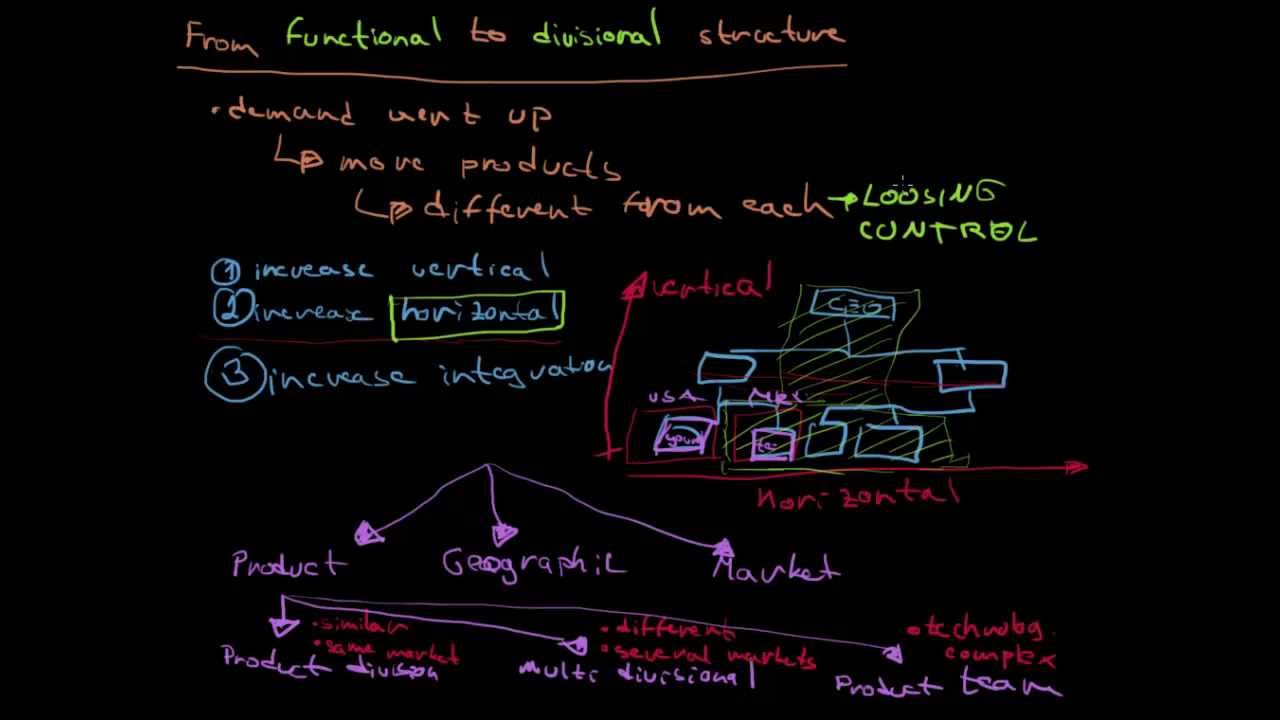 From functional to divisional structure
• demand went up
move products
different from each → LOOSING
CONTROL
① increase vertical
② increase horizontal
③ increase integration
vertical
CEO
USA
horizontal
Product Geographic Market
• similar
• same market
Product division
• different
• several markets
multi divisional
• technolog.
complex
Product team